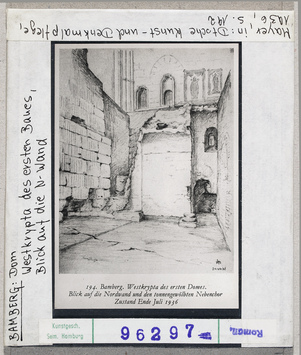 BAMBERG: Dom
Westkrypta des ersten Baues,
Blick auf die N-Wand
Hayer, in: Dtsche Kunst- und Denkmalpflege,
1936, S. 192
194. Bamberg. Westkrypta des ersten Domes.
Blick auf die Nordwand und den tonnengewölbten Nebenchor
Zustand Ende Juli 1936
Kunstgesch.
Sem. Hamburg
96297
Roman.